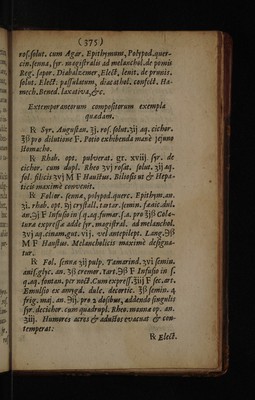 (375)
ros. solut. cum Agar. Epithymum, Polypod. quer-
cin. senna, syr. magistralis ad melanchol. de pomis
Reg. sapor. Diabalzemer, Elect. lenit. de prunis,
solut. Elect. passulatum, diacathol. confect. Ha-
mech. Bened. laxativa, &c.
Extemporaneorum compositorum exempla
quædam.
℞ Syr. Augustan. ʒj. ros. solut. ʒij aq. cichor.
ʒß pro dilutione F. Potio exhibenda manè jejuno
stomacho.
℞ Rhab. opt. pulverat. gr. xviij syr. de
cichor. cum dupl. Rheo ʒvj rosat. solut. ʒij aq.
fol. silicis ʒvj M F Haustus. Biliosis & Hepa-
ticis maximè convenit.
℞ Folior. senna, polypod. querc. Epithym. an.
ʒi. rhab. opt. ʒij crystall. tartar. semin. fænic. dul.
an. ℈j F Infusio in s. q. aq. fumar. s. a. pro ʒiß Cola-
tura expressa adde syr. magistral. ad melanchol.
ʒvj aq. cinnam. gut. vij. vel antepilept. Lang. ʒß
M F Haustus. Melancholicis maximè designa-
tur.
℞ Fol. senna ʒij pulp. Tamarind. ʒvi semin.
anis. glyc. an. ʒß cremor. tart. ℈ß F Infusio in s.
q. aq. fontan. per noct. Cum express. ʒiij F sec. art.
Emulsio ex amygd. dulc. decortic. ʒß semin. 4
frig. maj. an. ℈ij. pro 2 dosibus, addendo singulis
syr. decichor. cum quadrupl. Rheo. manna op. an.
ʒiij. Humores acres & adustos evacuat & con-
temperat:
℞ Elect.